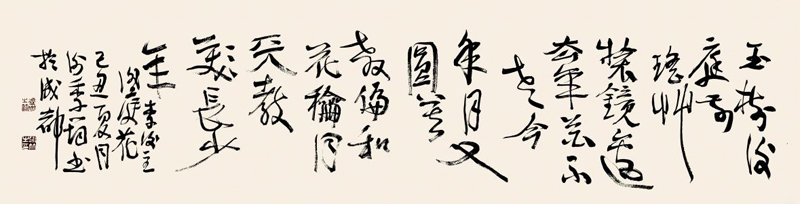 玉樹後
庭前
瑤艸
裝鏡邊
去年花不
老今
年月又
圓莫
教偏和
花龢月
天教
長少
年
李後主
後庭花
己丑夏月
謝季筠書
於成都